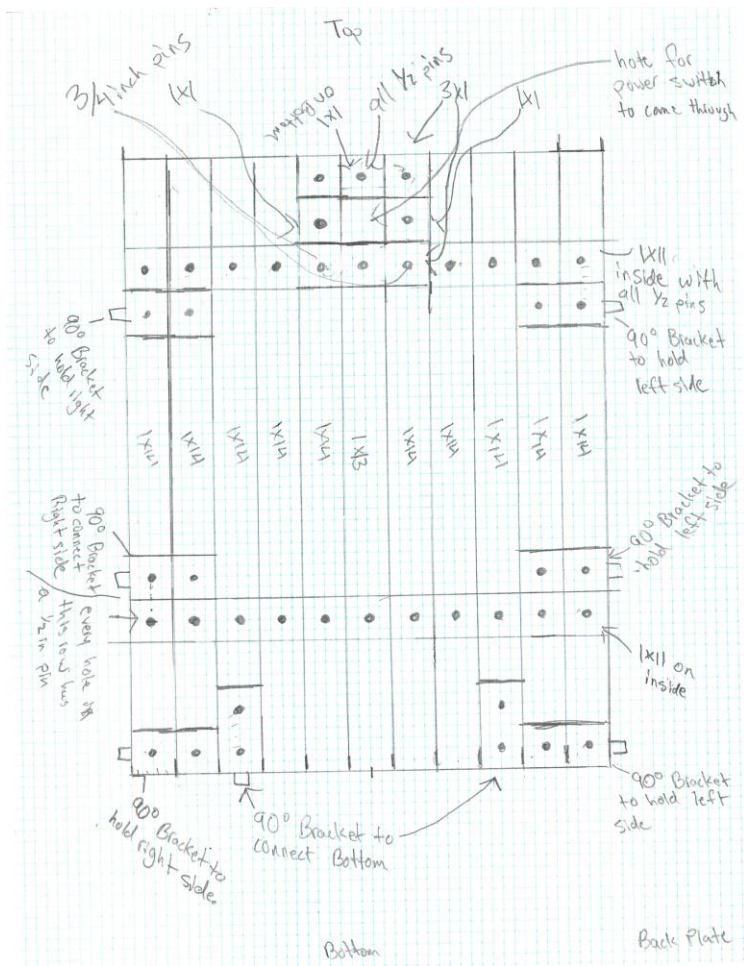 Top
3/4 inch pins
1X1
on Bottom
1X1
all 1/2 pins
3X1
1X1
hole for
power switch
to come through
1X11
inside with
all 1/2 pins
90° Bracket
to hold right
side
90° Bracket
to hold
left side
1X14
1X14
1X14
1X14
1X14
1X13
1X14
1X14
1X14
1X14
1X14
90° Bracket
to connect
Right side
90° Bracket to
hold left side
every hole on
this row has
a 1/2 in pin
1X11 on
inside
90° Bracket to
hold right side.
90° Bracket to
connect Bottom
90° Bracket
to hold left
side
Bottom
Back Plate